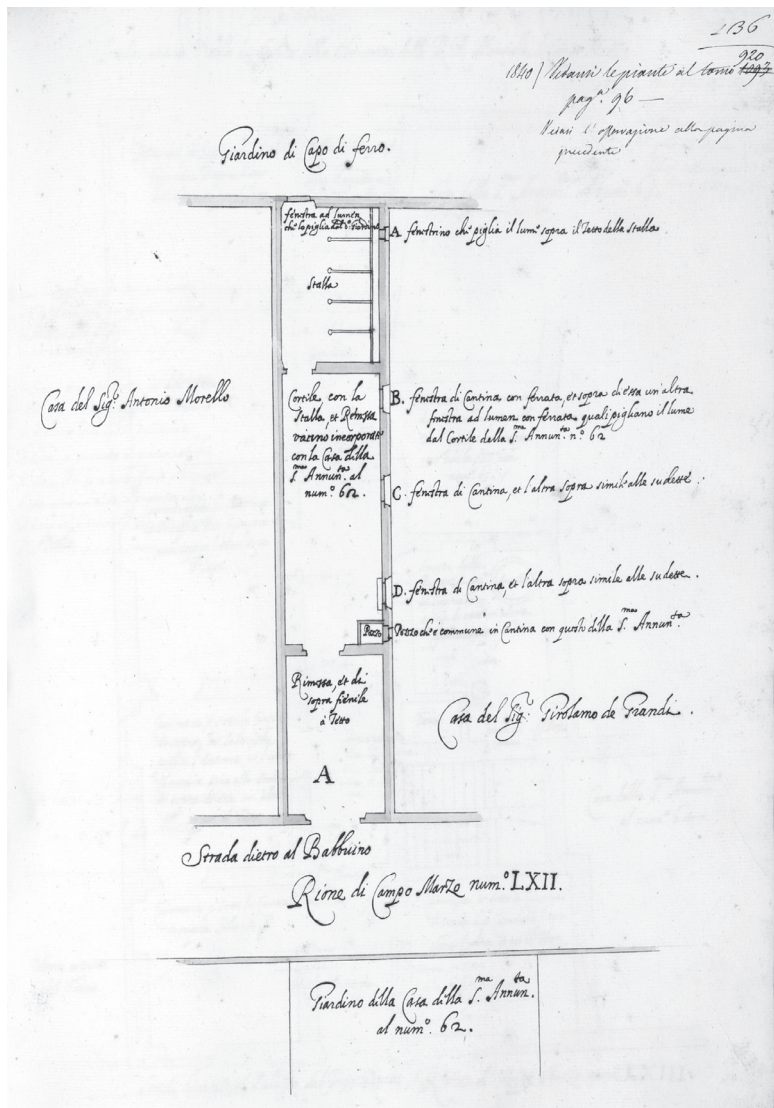 136
920
1840) Vedansi le piante al tomo 1093
pag.ª 96 —
Vedasi l'osservazione alla pagina
precedente
Giardino di Capo di ferro.
fenestra ad lumen
che lo piglia dal d.º Giardino
A fenestrino che piglia il lume sopra il Tetto della stalla.
Stalla
Casa del Sig.r Antonio Morello
Cortile, con la
Stalla, et Rimessa
vacino incorporate
con la Casa della
S.ma Annun.ta al
num.º 62.
B. fenestra di Cantina con ferrata, et sopra di essa un'altra
finestra ad lumen con ferrata quali pigliano il lume
dal Cortile della S.ma Annun.ta n.º 62
C. fenestra di Cantina, et l'altra sopra simile alle sudette.
D. fenestra di Cantina, et l'altra sopra simile alle sudette.
Pozzo
Pozzo che è commune in Cantina con questo della S.ma Annun.ta
Rimessa, et di
sopra fienile
à Tetto
Casa del Sig.r Girolamo de Grandi.
A
Strada dietro al Babbuino
Rione di Campo Marzo num.º LXII.
Giardino della Casa della S.ma Annun.ta
al num.º 62.